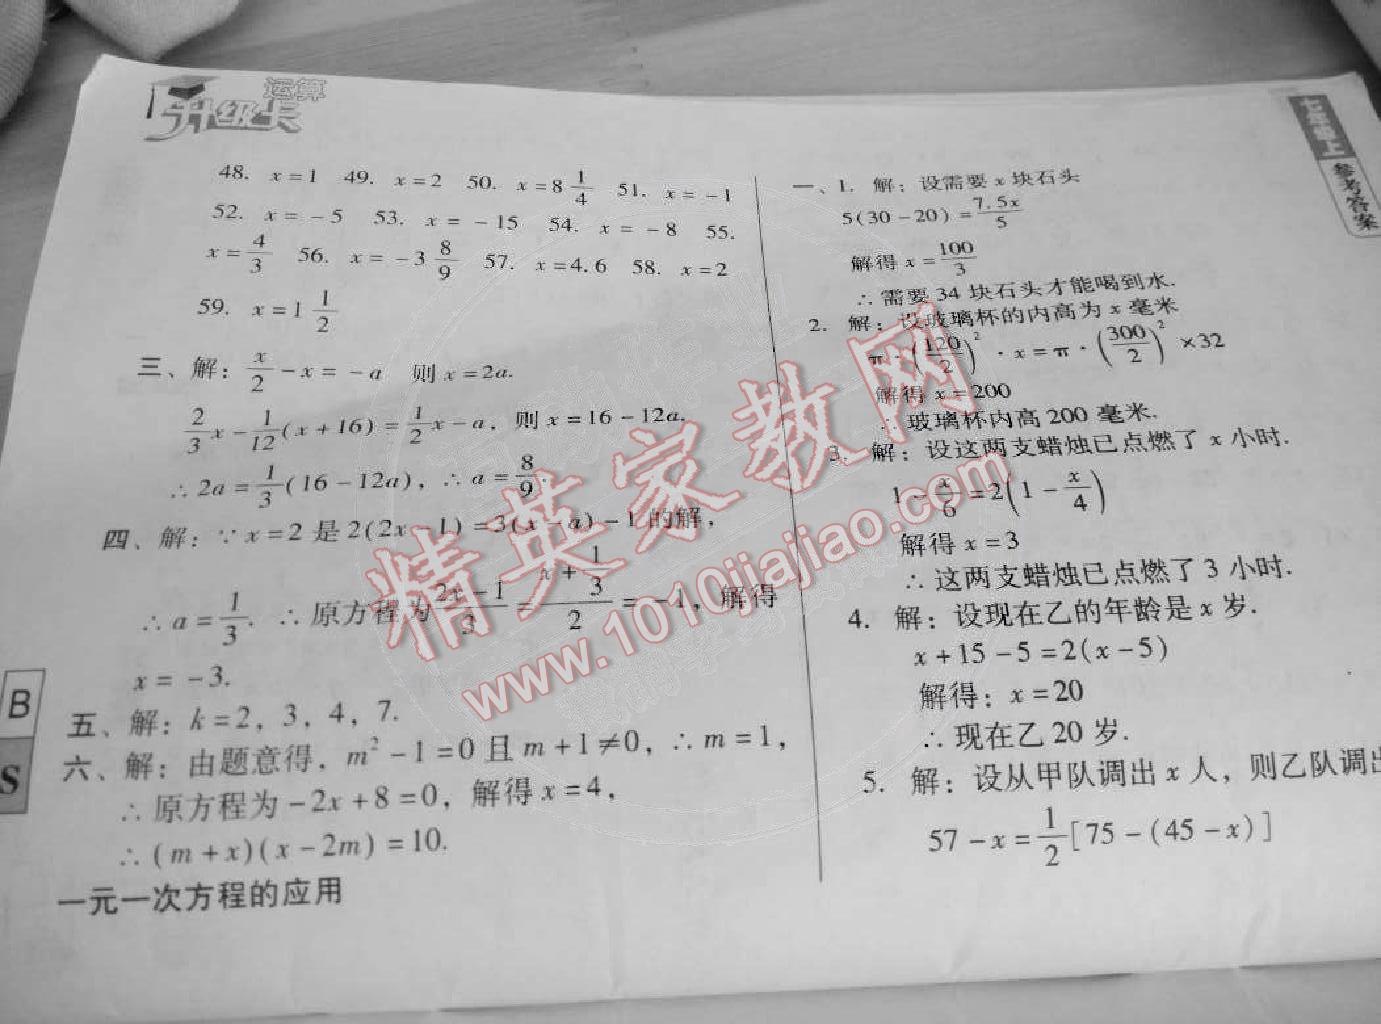 运算
升级卡
七年级上
参考答案
48. x=1 49. x=2 50. x=8 1/4 51. x=-1
52. x=-5 53. x=-15 54. x=-8 55.
x=4/3 56. x=-3 8/9 57. x=4.6 58. x=2
59. x=1 1/2
三、解：x/2-x=-a 则x=2a.
2/3x-1/12(x+16)=1/2x-a，则x=16-12a.
∴2a=1/3(16-12a)，∴a=8/9.
四、解：∵x=2是2(2x-1)=3(x-a)-1的解，
∴a=1/3. ∴原方程为(2x-1)/3=(x+1/3)/2=-1，解得
x=-3.
五、解：k=2，3，4，7.
六、解：由题意得，m²-1=0且m+1≠0，∴m=1，
∴原方程为-2x+8=0，解得x=4，
∴(m+x)(x-2m)=10.
一元一次方程的应用
一、1. 解：设需要x块石头
5(30-20)=7.5x/5
解得x=100/3
∴需要34块石头才能喝到水.
2. 解：设玻璃杯的内高为x毫米
π·(120/2)²·x=π·(300/2)²×32
解得x=200
∴玻璃杯内高200毫米.
3. 解：设这两支蜡烛已点燃了x小时.
1-x/6=2(1-x/4)
解得x=3
∴这两支蜡烛已点燃了3小时.
4. 解：设现在乙的年龄是x岁.
x+15-5=2(x-5)
解得：x=20
∴现在乙20岁.
5. 解：设从甲队调出x人，则乙队调出
57-x=1/2[75-(45-x)]
B
S
精英家教网
www.1010jiajiao.com